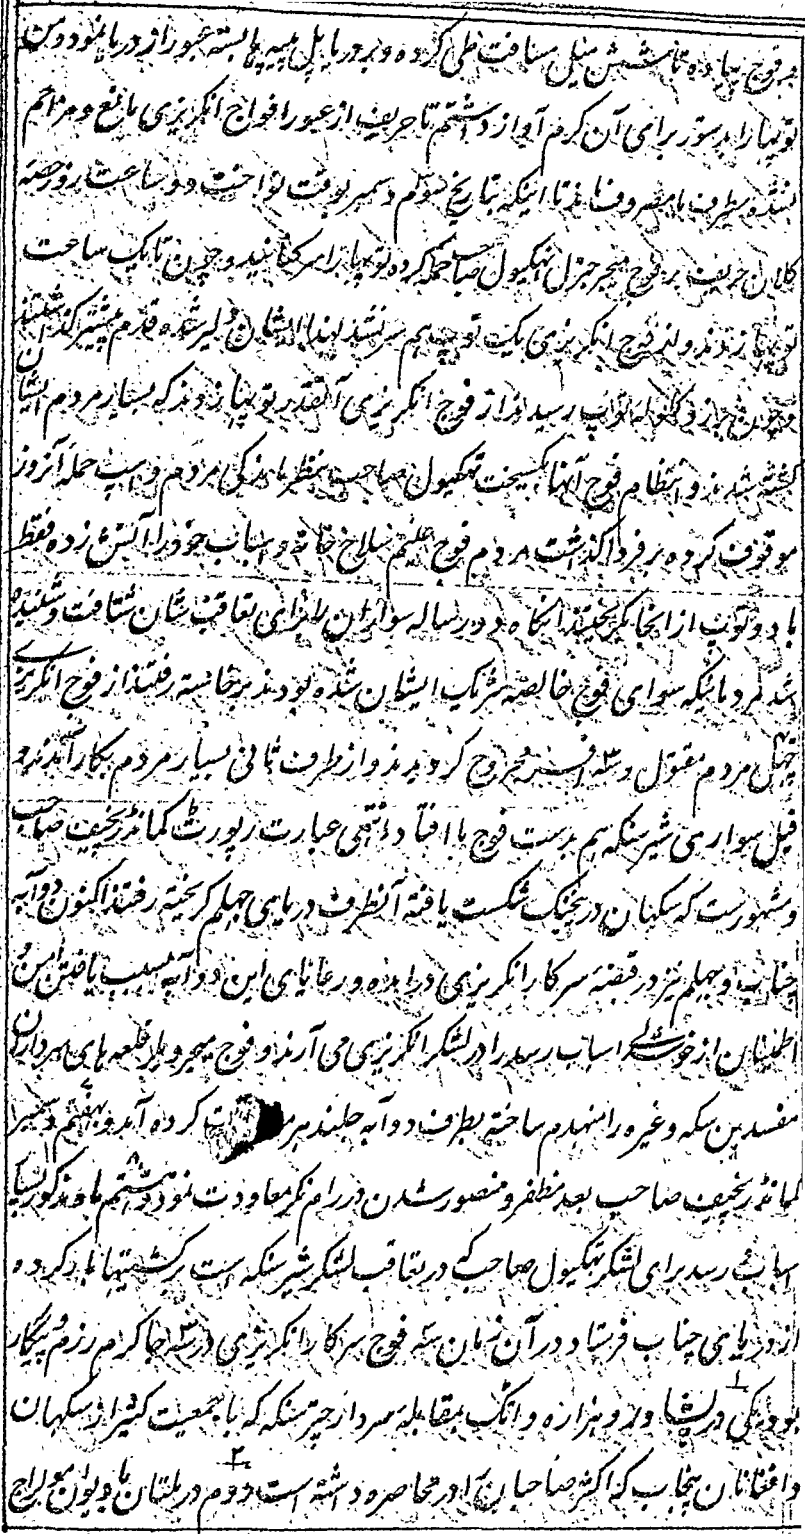 و فوج پیاده تا شش میل مسافت طی کرده و برو پایل پیپه پا بسته عبور از دریا نمود و من
توپها را بدستور برای آن گرم آواز داشتم تا حریف از عبور افواج انگریزی مانع و مزاحم
نشده بطرف ما مصروف ماند تا اینکه بتاریخ سوم دسمبر بوقت نواخت دو ساعت روز حصه
کلان حریف بر فوج میجر جنرل تهکیول صاحب حمله کرده توپها را سر کنانید و چون تا یک ساعت
توپها زدند و از فوج انگریزی یک توپ هم سر نشد لهذا ایشان دلیر شده قدم پیشتر گذاشتند
و چون بر زد گلوله توپ رسیدند از فوج انگریزی آنقدر توپها زدند که بسیار مردم ایشان
کشته شدند و انتظام فوج آنها گسیخت تهکیول صاحب بنظر ماندگی مردم و اسپ حمله آنروز
موقوف کرده بر فردا گذاشت مردم فوج غنیم سلاح خانه و اسباب خود را آتش زده فقط
با دو توپ از انجا گریختند آنگاه دو رساله سواران را برای تعاقب شان شتافت و شنیده
شد مردمانیکه سوای فوج خالصه شریک ایشان شده بودند برخاسته رفتند از فوج انگریزی
چهل مردم مقتول و ۳ افسر مجروح گردیدند و از طرف ثانی بسیار مردم بکار آمدند و
فیل سواری شیر سنگه هم بدست فوج ما افتاد انتهی عبارت رپورٹ کمانڈر نچیف صاحب
و مشهور ست که سکهان در جنگ شکست یافته آنطرف دریای جهلم گریخته رفتند اکنون دوآبه
چناب و جهلم نیز در قبضه سرکار انگریزی درآمده و رعایای این دوآبه بسبب یافتن امن و
اطمینان از خوشدلی اسباب رسد را در لشکر انگریزی می آرند و فوج میجر ویلر قلعه های سرداران
مفسدین سکه و غیره را منهدم ساخته بطرف دوآبه جلندهر کرده آمد و بهفتم دسمبر
کمانڈر نچیف صاحب بعد مظفر و منصور شدن در رام نگر معاودت نمود و هشتم ماه مذکور بسیار
اسباب رسد برای لشکر تهکیول صاحب که در تعاقب لشکر شیر سنگه است بر کشتیها بار کرده
از دریای چناب فرستاد در آن زمان سه فوج سرکار انگریزی در سه جا گرم رزم و پیکار
بود یکی در پشاور و هزاره و اٹک بمقابله سردار چتر سنگه که با جمعیت کثیر از سکهان
و افغانان پنجاب که اکثر صاحبان را در محاصره داشته است دوم در ملتان با دیوان مولراج